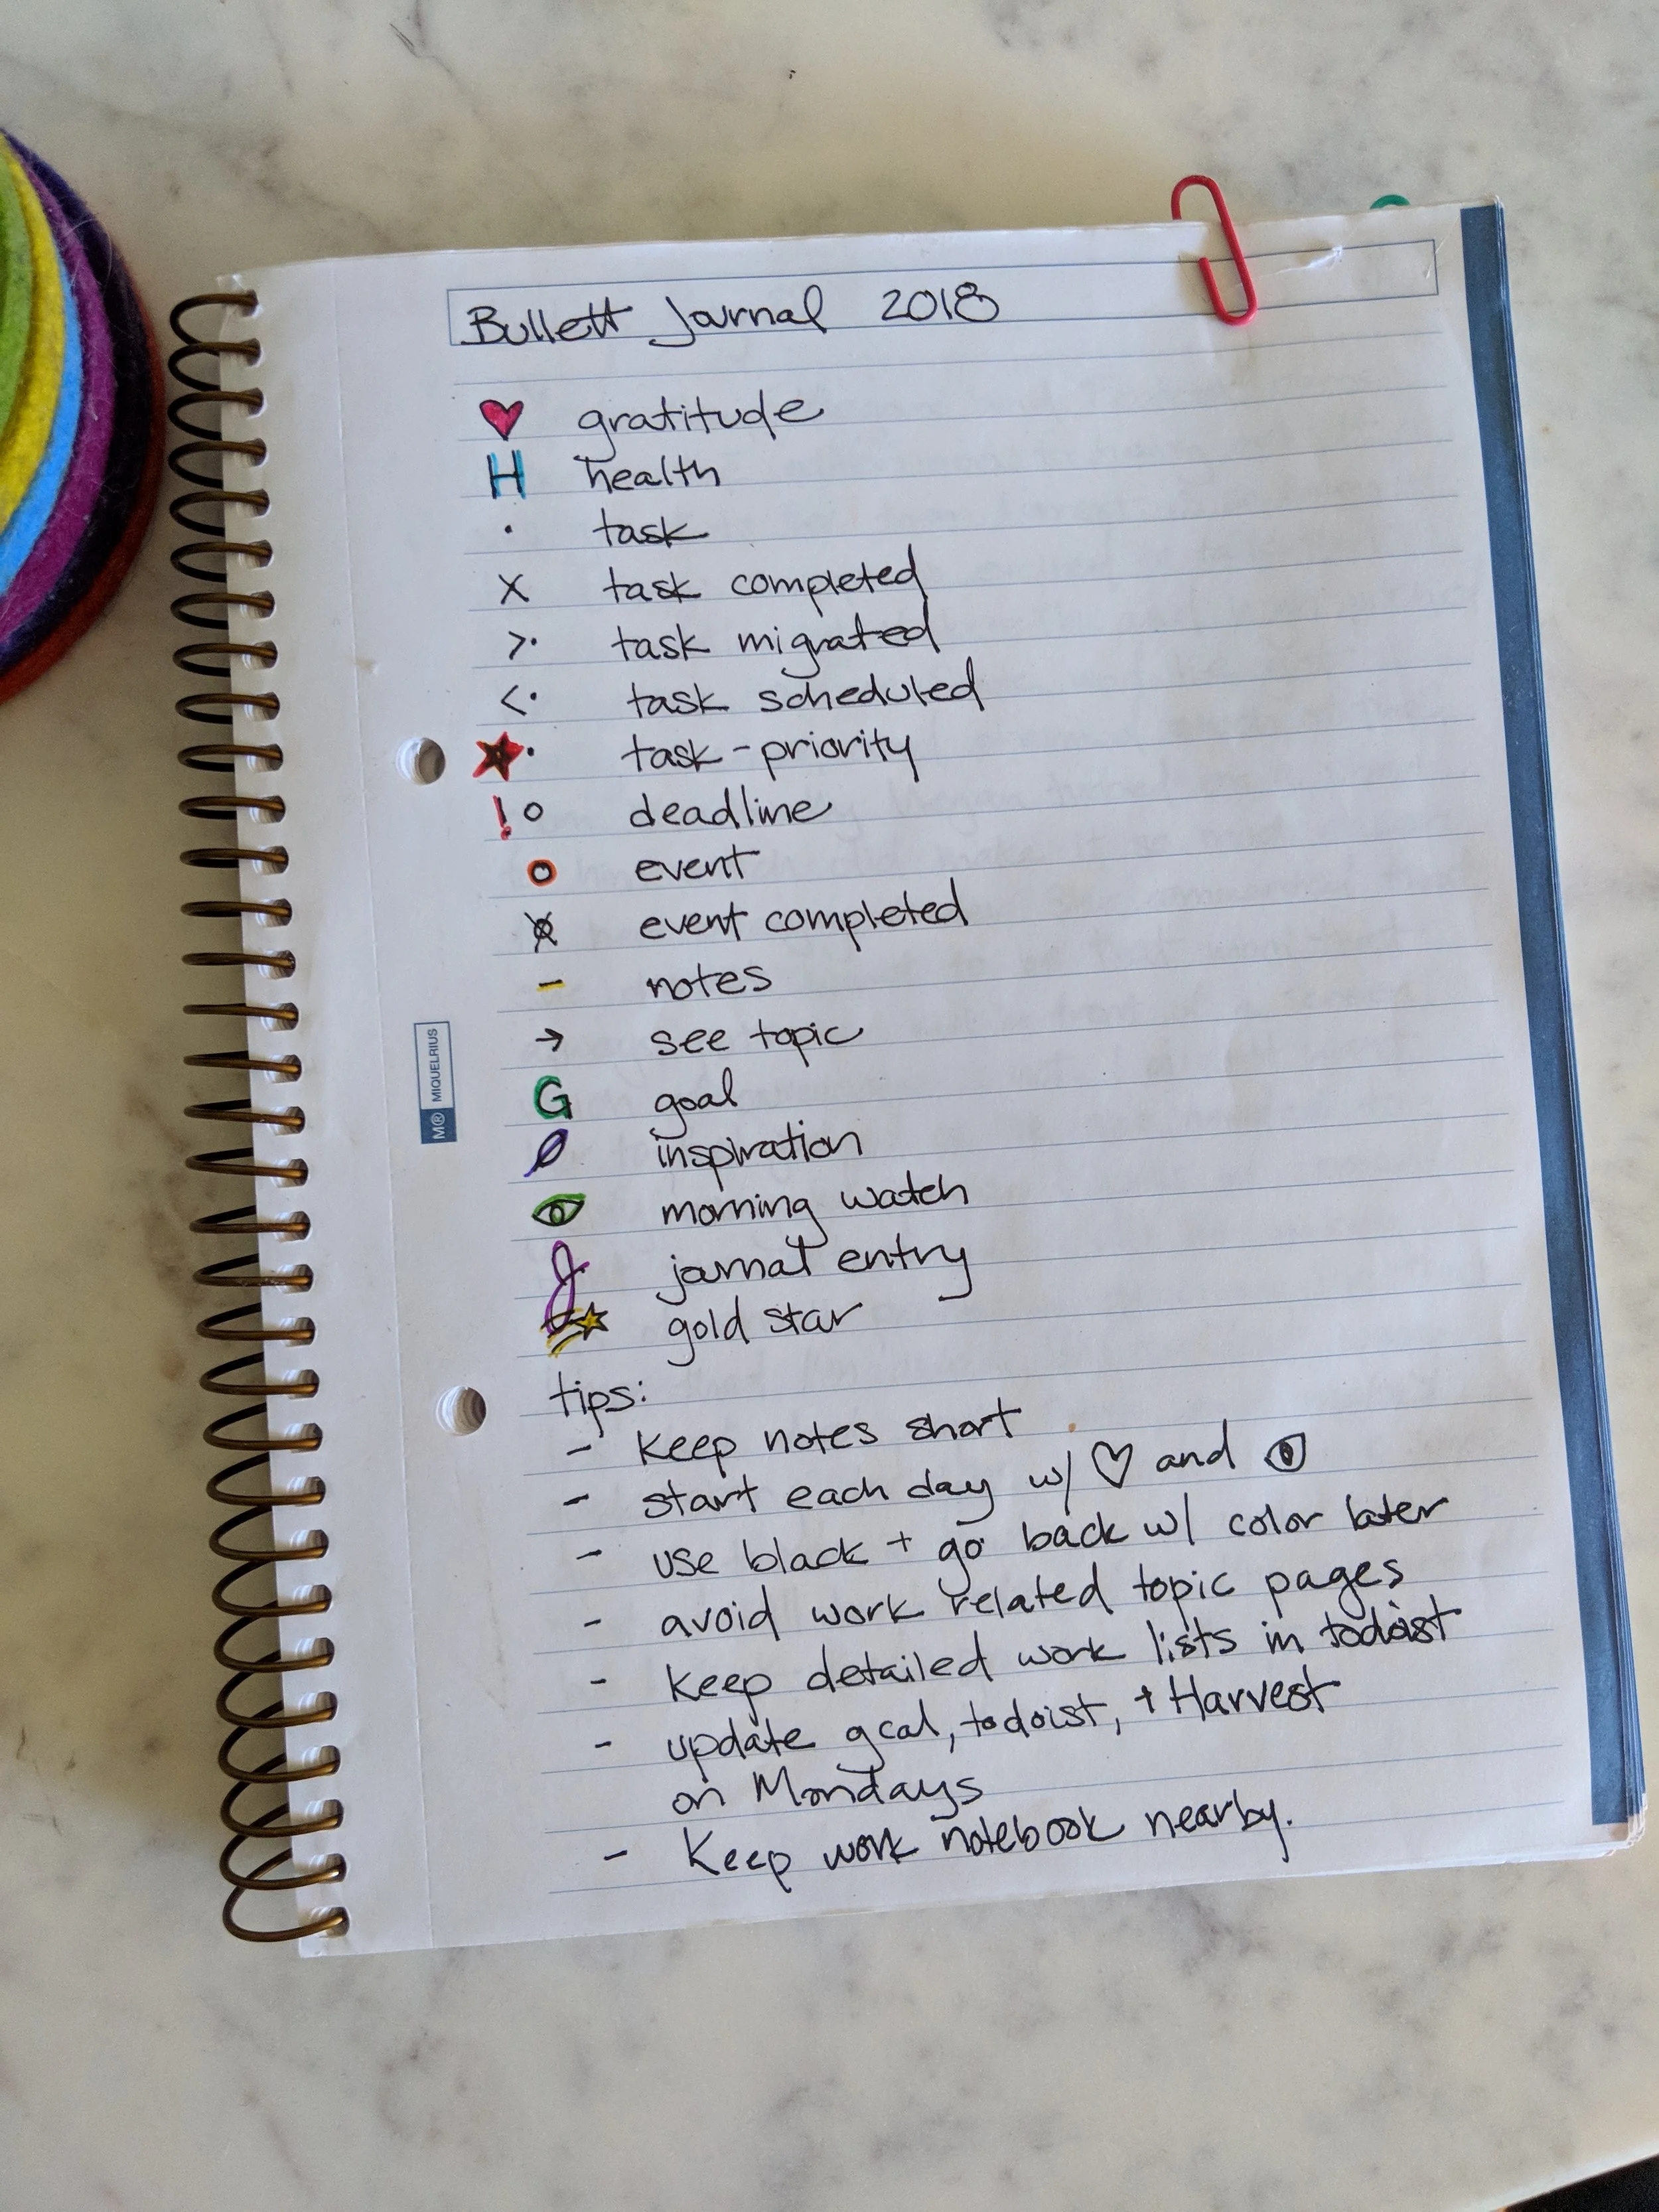 Bullett Journal 2018
♥ gratitude
H health
· task
X task completed
>· task migrated
<· task scheduled
★· task-priority
!○ deadline
○ event
event completed
- notes
→ see topic
G goal
inspiration
👁 morning watch
J journal entry
gold star
tips:
- Keep notes short
- start each day w/ ♡ and 👁
- use black + go back w/ color later
- avoid work related topic pages
- Keep detailed work lists in todoist
- update gcal, todoist, + Harvest
on Mondays
- Keep work notebook nearby.
M® MIQUELRIUS